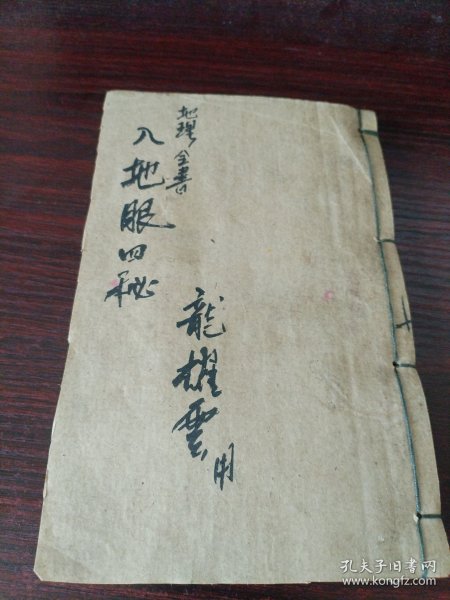 地理全書
入地眼四秘
龍耀雲用
孔夫子旧书网
www.kongfz.com